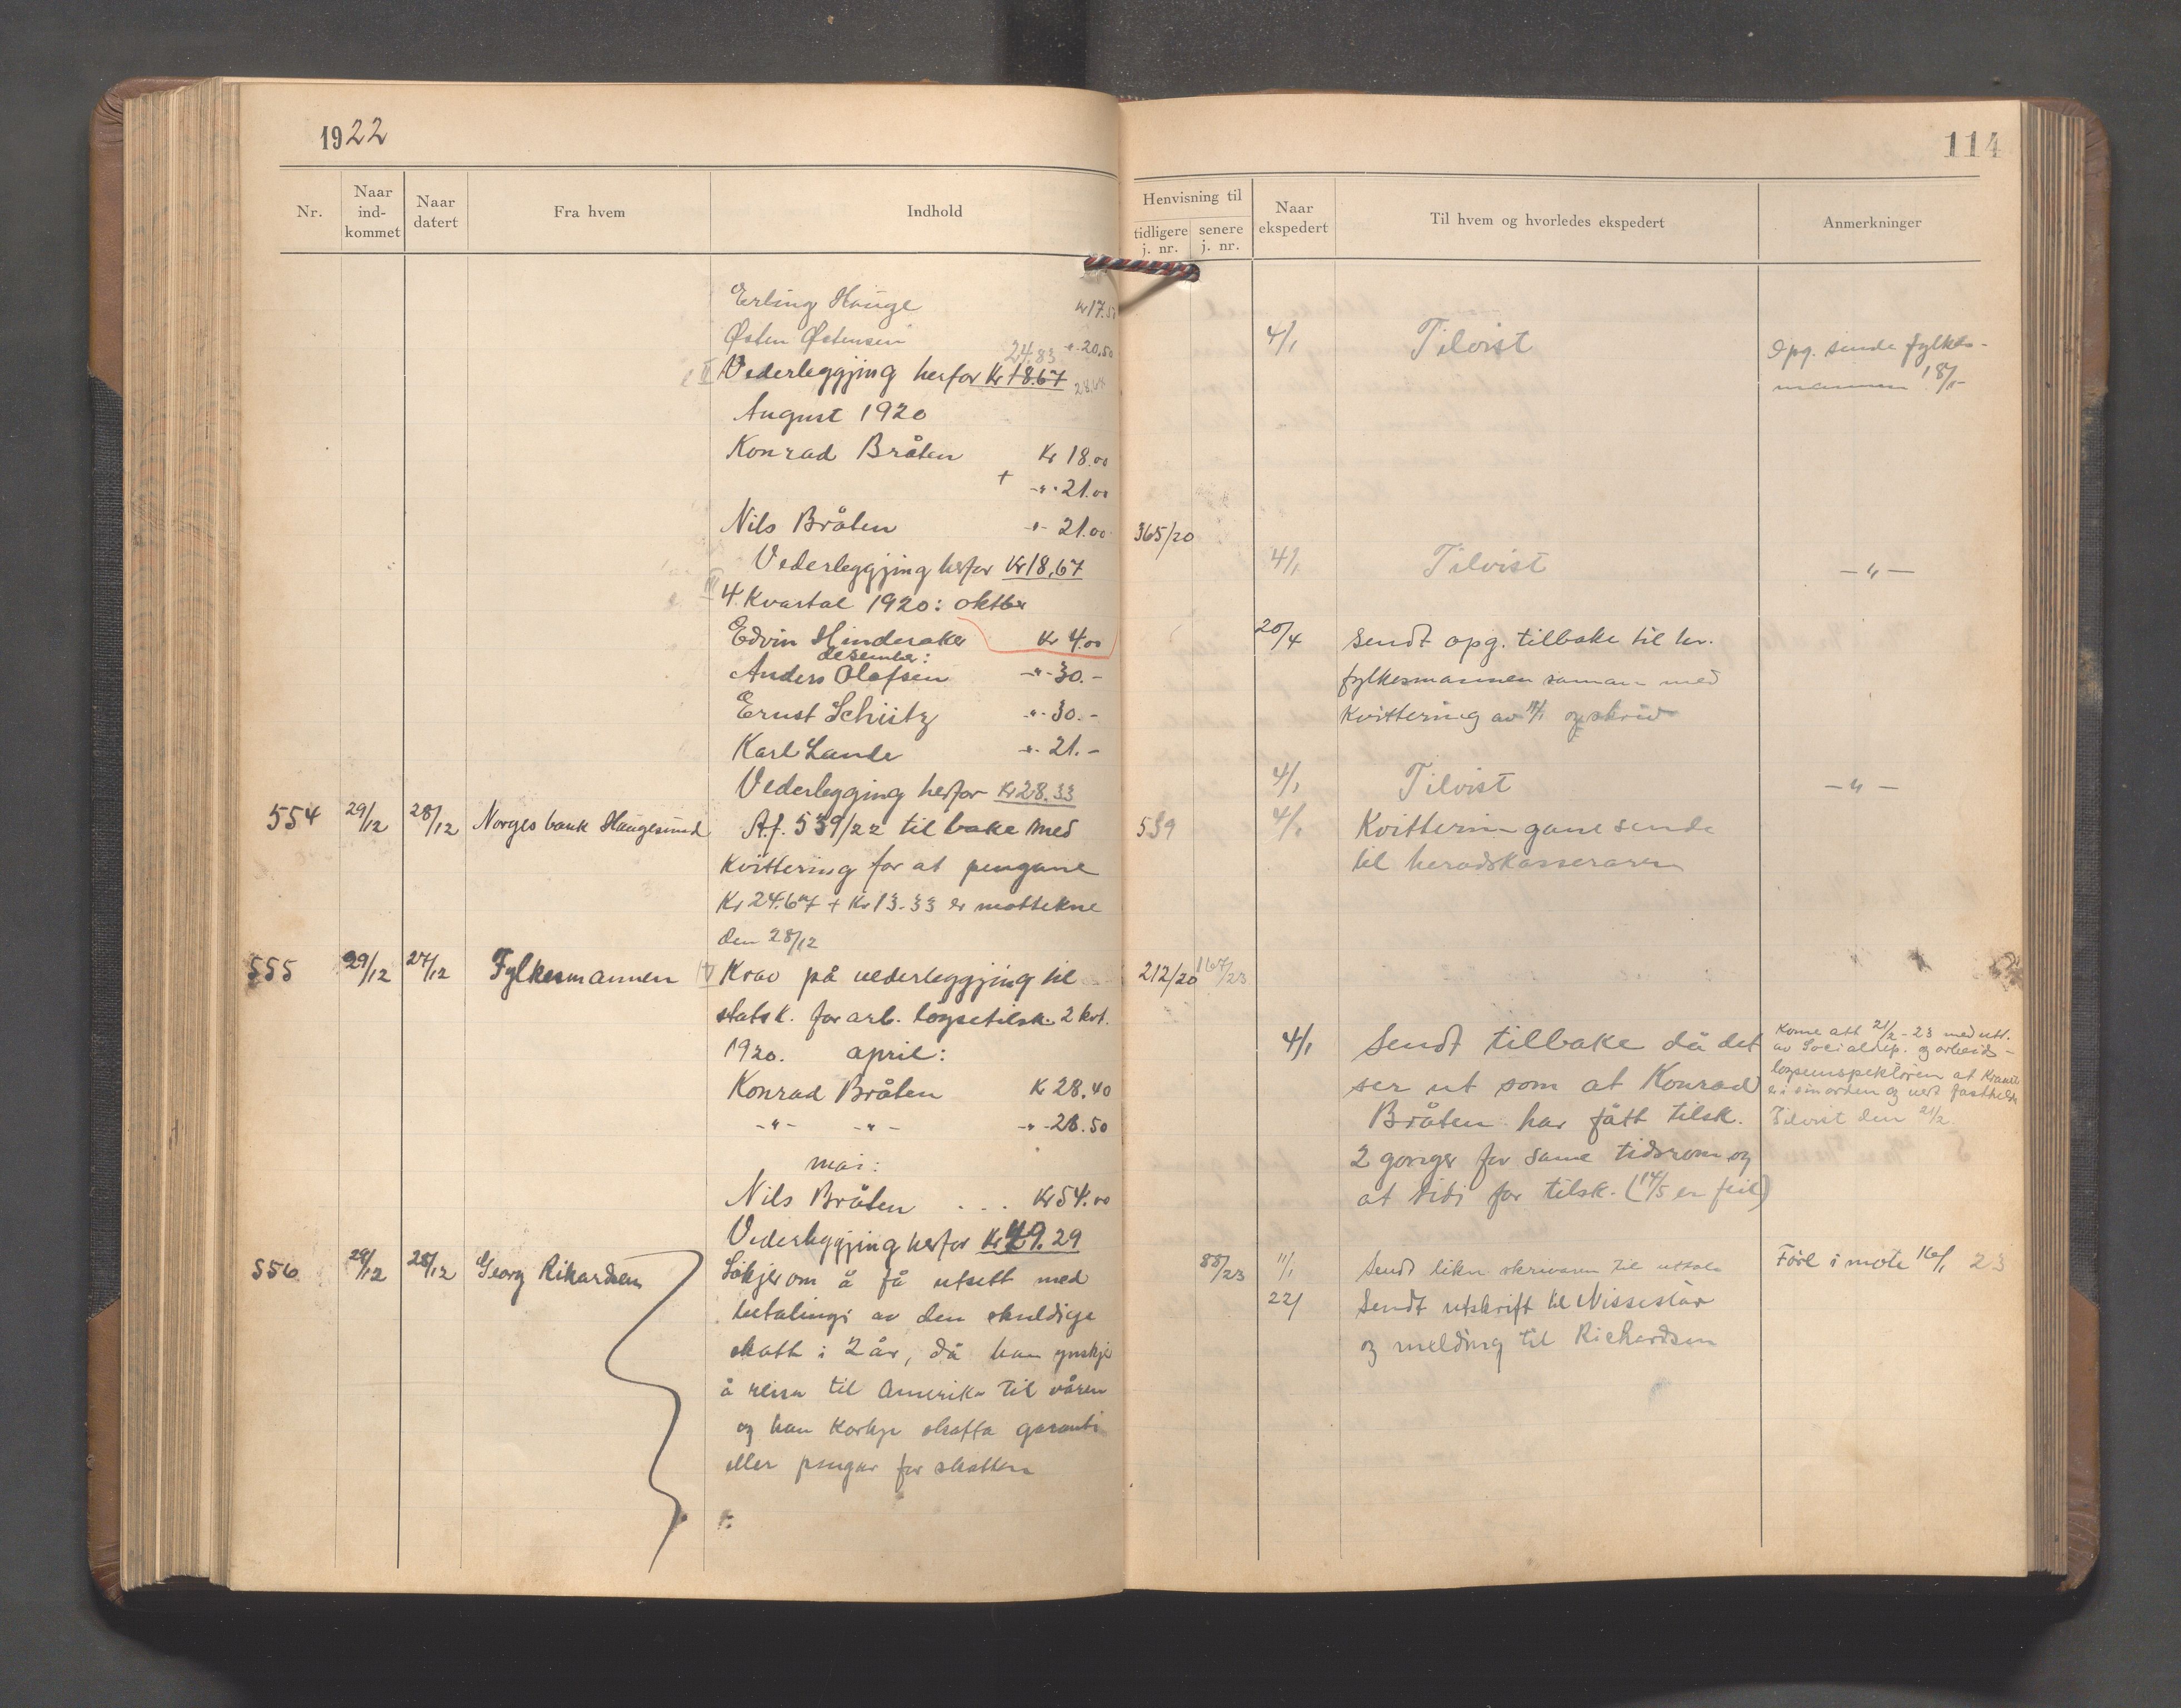 1922
Nr.
Naar ind-kommet
Naar datert
Fra hvem
Indhold
Erling Hauge Kr 17.50
Østen Østensen -"- 20.50
24.83
II Vederleggjing herfor Kr 18.67 28.67
August 1920
Konrad Bråten Kr 18.00
+ -"- 21.00
Nils Bråten -"- 21.00
Vederleggjing herfor Kr 18,67
III 4. Kvartal 1920: oktbr
Edvin Hinderaker Kr 4.00
desember:
Anders Olafsen -"- 30.-
Ernst Schütz -"- 30.-
Karl Lande -"- 21.-
Vederlegging herfor Kr 28.33
554 29/12 28/12 Norges bank Haugesund Af. 539/22 tilbake med
Kvittering for at pengane
Kr 24.67 + Kr 13.33 er mottekne
den 28/12
555 29/12 27/12 Fylkesmannen IV Krav på vederleggjing til
statsk. for arb. løysetilsk. 2 kvt.
1920. april:
Konrad Bråten Kr 28.40
-"- -"- -"- 28.50
mai:
Nils Bråten . . . Kr 54.00
Vederleggjing herfor Kr 49.29
556 29/12 28/12 Georg Rikardsen Søkjer om å få utsett med
betalingi av den skuldige
skatt i 2 år, då han ynskjer
å reisa til Amerika til våren
og han korkje skaffa garanti
eller pengar for skatten
114
Henvisning til
tidligere j. nr.
senere j. nr.
Naar ekspedert
Til hvem og hvorledes ekspedert
Anmerkninger
4/1 Tilvist Opg. sende fylkes-
mannen 18/1
365/20
4/1 Tilvist —"—
20/4 Sendt opg. tilbake til hr.
fylkesmannen saman med
Kvittering av 17/1 og skriv
4/1 Tilvist —"—
539 4/1 Kvitteringane sende
til heradskasseraren
212/20 167/23
4/1 Sendt tilbake då det
ser ut som at Konrad
Bråten har fått tilsk.
2 gonger for same tidsrom og
at tidi for tilsk. (14/5 er feil)
Kome att 21/2-23 med utt.
av Socialdep. og arbeids-
løysinspektøren at Kravet
er i sin orden og vert fasthelde
Tilvist den 21/2
88/23 11/1 Sendt likn. skrivaren til uttale Före i møte 16/1 23
22/1 Sendt utskrift til
og melding til Richardsen